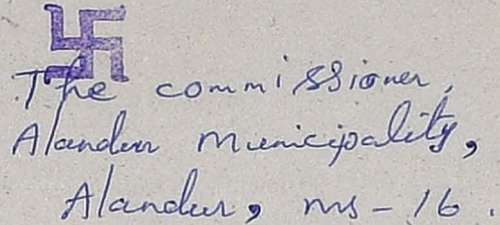 The commissioner,
Alandur Municipality,
Alandur, ms - 16.